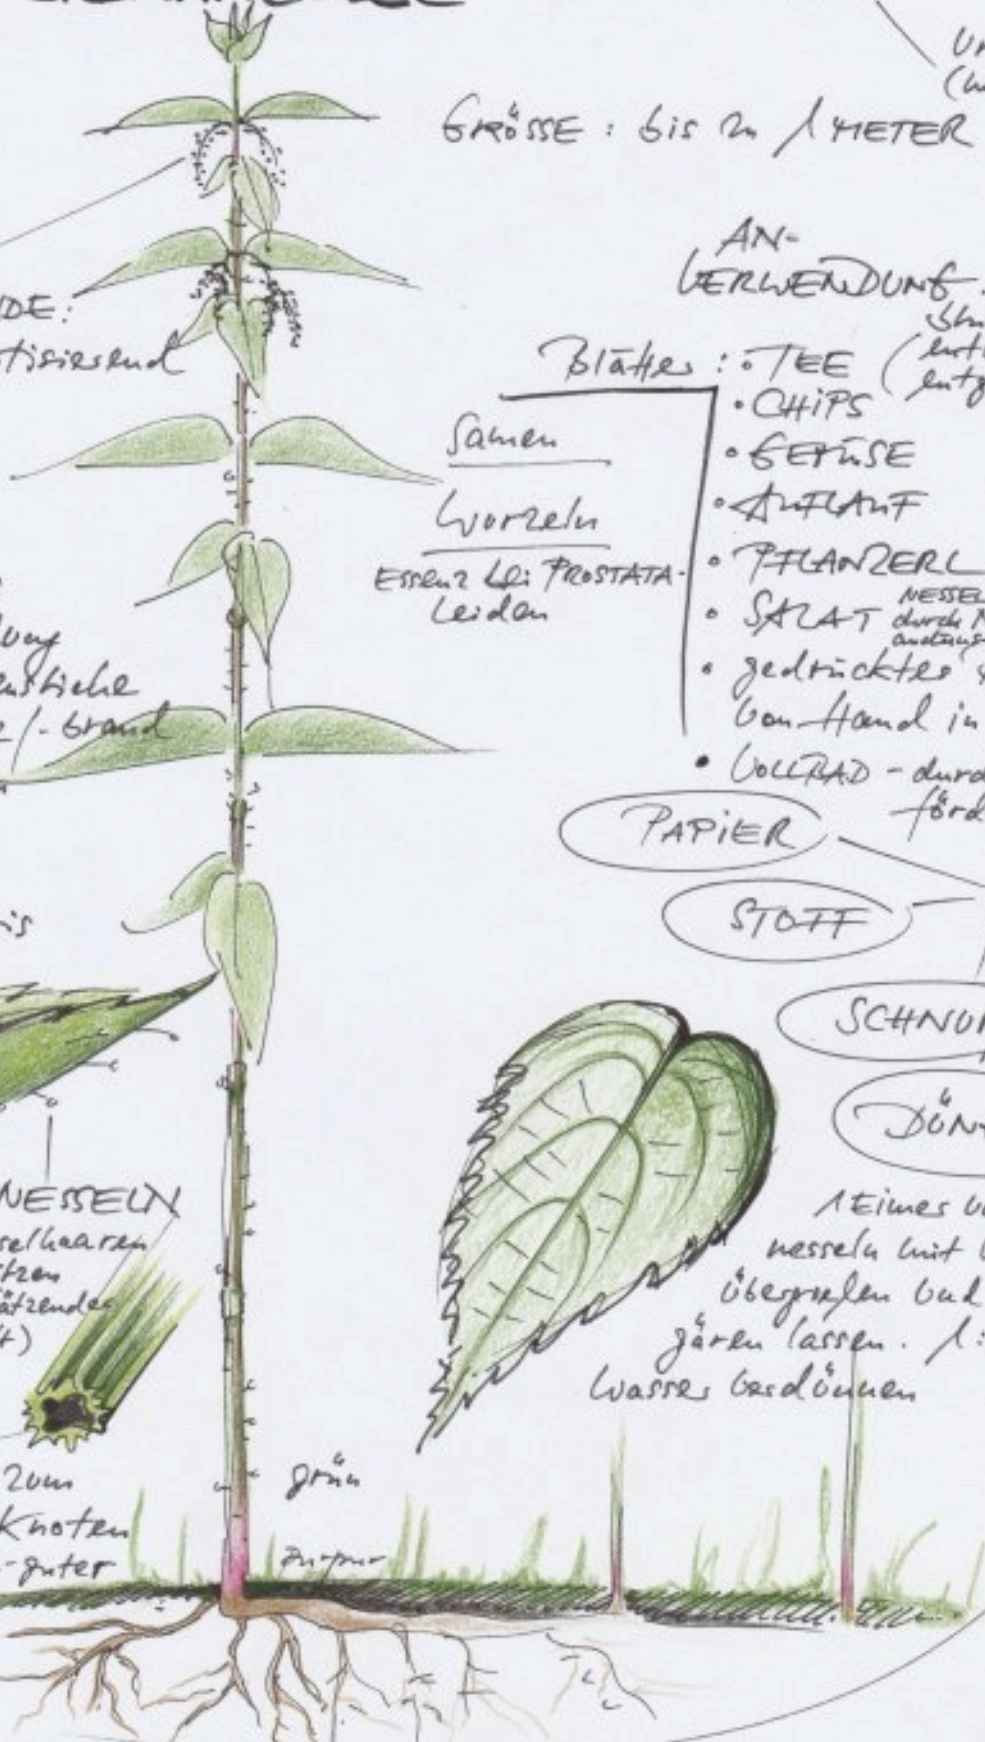 GRÖSSE : bis zu 1 METER
AN-
VERWENDUNG
DE:
tisierend
Blätter : • TEE
• CHIPS
• GEMÜSE
• AUFLAUF
• PFLANZERL
• SALAT
NESSEL
durch
• gedrücktes
von Hand in
• VOLLBAD - durc
förd
Samen
Wurzeln
Essenz bei PROSTATA-
leiden
ung
enstiche
/-brand
is
PAPIER
STOFF
SCHNUR
DÜN
1 Eimer
nesseln mit
übergießen und
gären lassen. 1:
Wasser verdünnen
NESSELN
selhaaren
tzen
ätzende
t)
zum
Knoten
-guter
grün
purpur